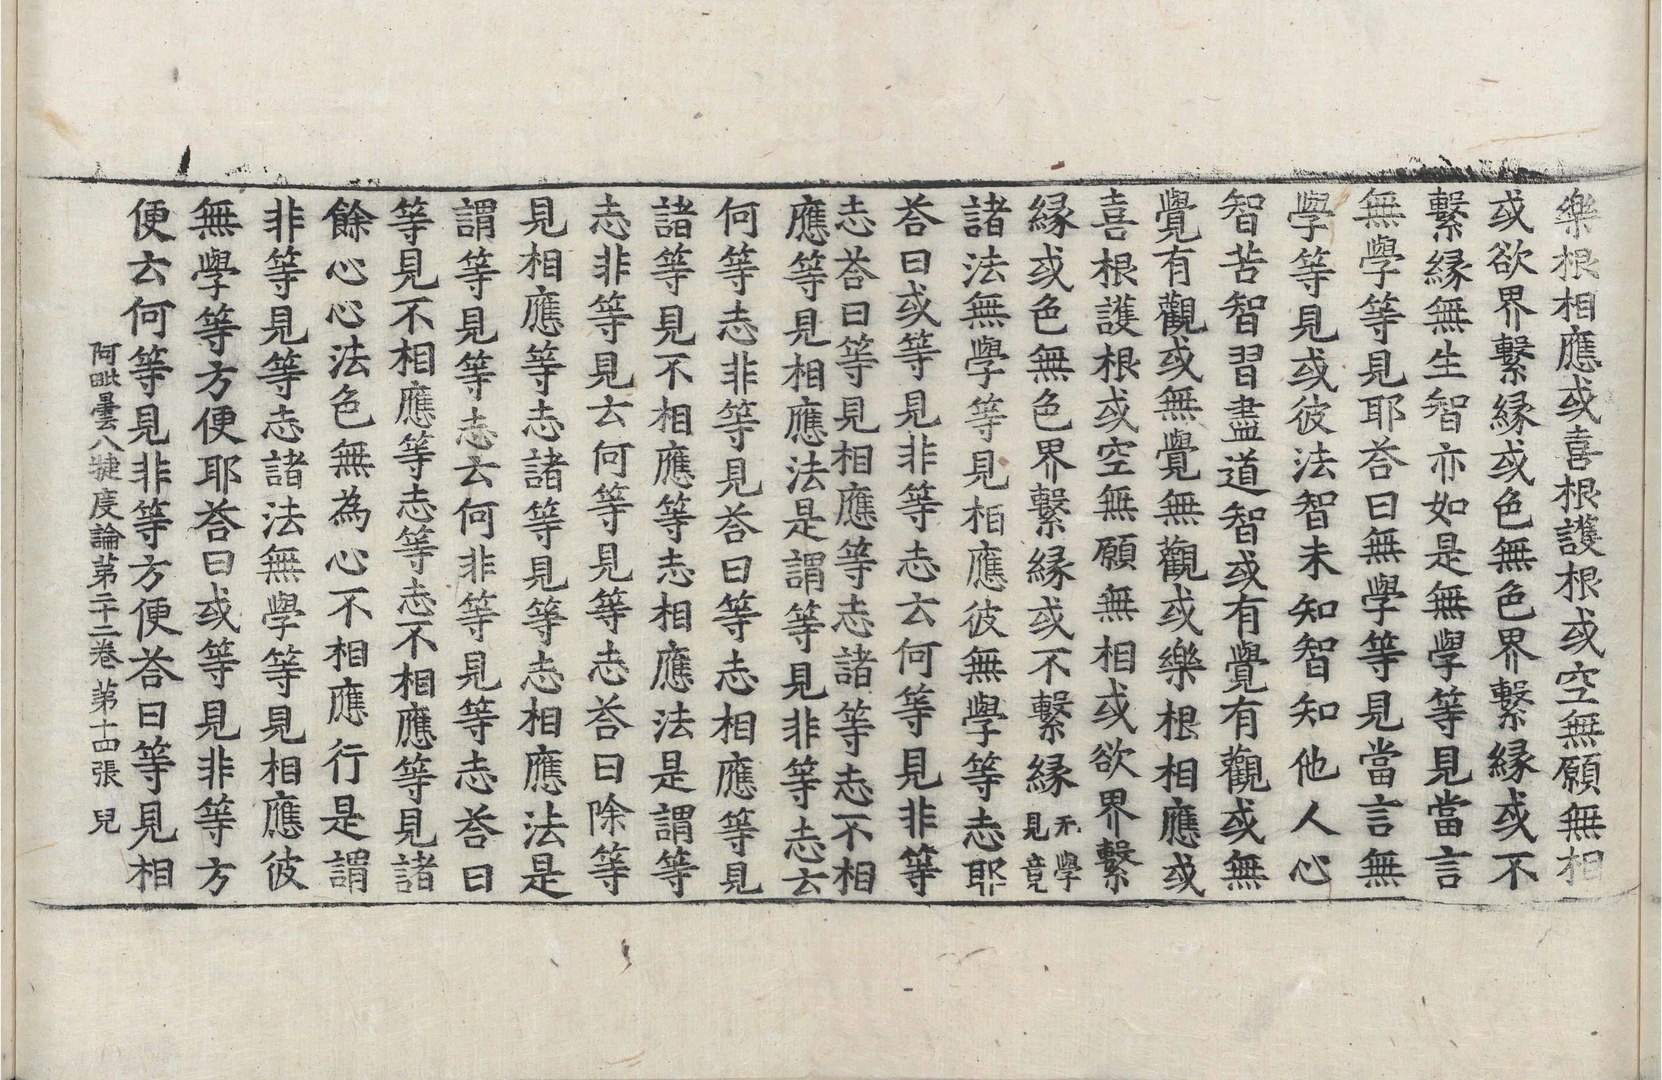 樂根相應或喜根護根或空無願無相
或欲界繫緣或色無色界繫緣或不
繫緣無生智亦如是無學等見當言
無學等見耶荅曰無學等見當言無
學等見或彼法智未知智知他人心
智苦智習盡道智或有覺有觀或無
覺有觀或無覺無觀或樂根相應或
喜根護根或空無願無相或欲界繫
緣或色無色界繫緣或不繫緣無學見竟
諸法無學等見相應彼無學等志耶
荅曰或等見非等志云何等見非等
志荅曰等見相應等志諸等志不相
應等見相應法是謂等見非等志云
何等志非等見荅曰等志相應等見
諸等見不相應等志相應法是謂等
志非等見云何等見等志荅曰除等
見相應等志諸等見等志相應法是
謂等見等志云何非等見等志荅曰
等見不相應等志等志不相應等見諸
餘心心法色無為心不相應行是謂
非等見等志諸法無學等見相應彼
無學等方便耶荅曰或等見非等方
便云何等見非等方便荅曰等見相
阿毗曇八揵度論苐二十二卷 苐十四張 兒